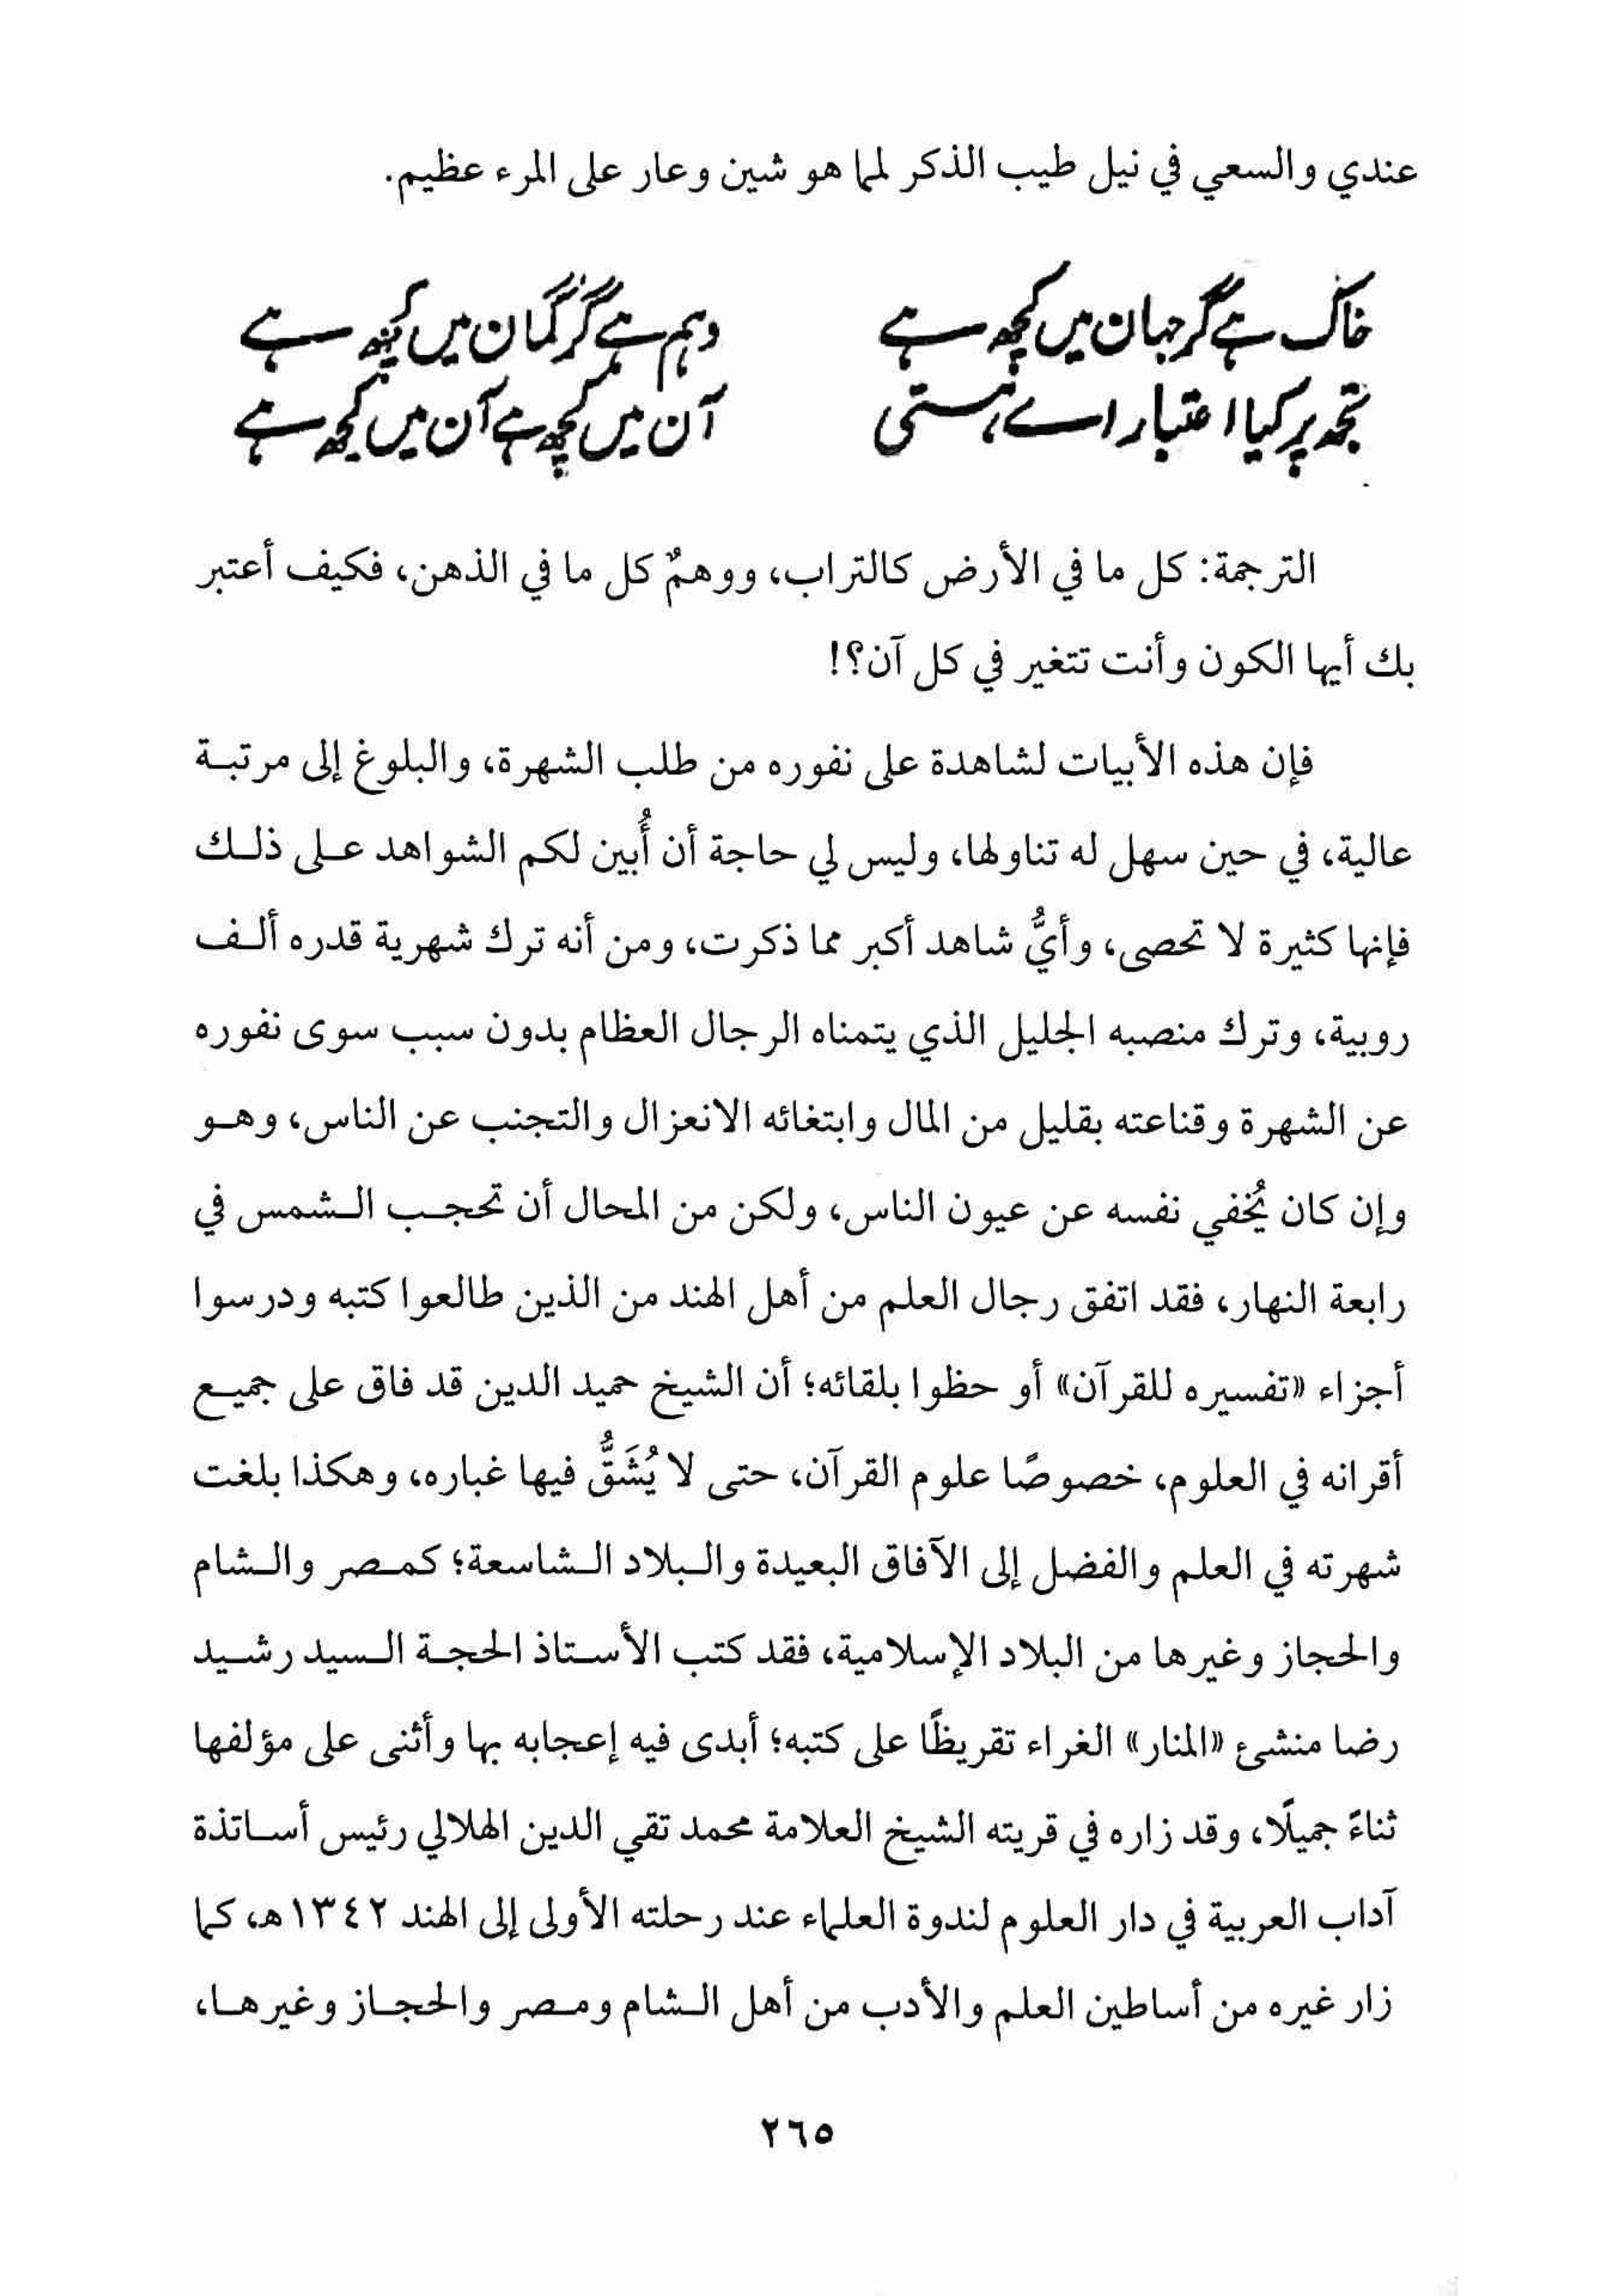 عندي والسعي في نيل طيب الذكر لمما هو شين وعار على المرء عظيم.
خاک ہے گر جہان میں کچھ ہے وہم ہے گر گمان میں کچھ ہے
تجھ پر کیا اعتبار اے ہستی آن میں کچھ ہے آن میں کچھ ہے
الترجمة: كل ما في الأرض كالتراب، ووهمٌ كل ما في الذهن، فكيف أعتبر
بك أيها الكون وأنت تتغير في كل آن؟!
فإن هذه الأبيات لشاهدة على نفوره من طلب الشهرة، والبلوغ إلى مرتبة
عالية، في حين سهل له تناولها، وليس لي حاجة أن أُبين لكم الشواهد على ذلك
فإنها كثيرة لا تحصى، وأيُّ شاهد أكبر مما ذكرت، ومن أنه ترك شهرية قدره ألف
روبية، وترك منصبه الجليل الذي يتمناه الرجال العظام بدون سبب سوى نفوره
عن الشهرة وقناعته بقليل من المال وابتغائه الانعزال والتجنب عن الناس، وهو
وإن كان يُخفي نفسه عن عيون الناس، ولكن من المحال أن تحجب الشمس في
رابعة النهار، فقد اتفق رجال العلم من أهل الهند من الذين طالعوا كتبه ودرسوا
أجزاء «تفسيره للقرآن» أو حظوا بلقائه؛ أن الشيخ حميد الدين قد فاق على جميع
أقرانه في العلوم، خصوصًا علوم القرآن، حتى لا يُشَقُّ فيها غباره، وهكذا بلغت
شهرته في العلم والفضل إلى الآفاق البعيدة والبلاد الشاسعة؛ كمصر والشام
والحجاز وغيرها من البلاد الإسلامية، فقد كتب الأستاذ الحجة السيد رشيد
رضا منشئ «المنار» الغراء تقريظًا على كتبه؛ أبدى فيه إعجابه بها وأثنى على مؤلفها
ثناءً جميلًا، وقد زاره في قريته الشيخ العلامة محمد تقي الدين الهلالي رئيس أساتذة
آداب العربية في دار العلوم لندوة العلماء عند رحلته الأولى إلى الهند ١٣٤٢هـ، كما
زار غيره من أساطين العلم والأدب من أهل الشام ومصر والحجاز وغيرها،
٢٦٥